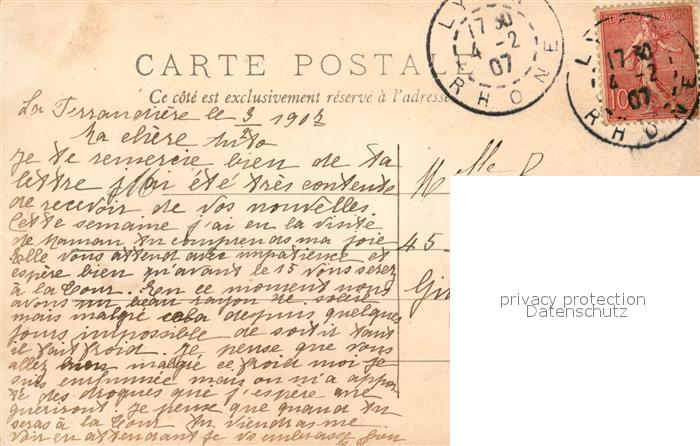 LYON
17 30
4 - 2
07
RHONE
LYON
17 30
4 - 2
07
RHONE
10
CARTE POSTALE
Ce côté est exclusivement réservé à l'adresse
La Ferrandière le 3/2 1907
Ma chère
Je te remercie bien de ta
lettre j'ai été très contente
de recevoir de vos nouvelles.
Cette semaine j'ai eu la visite
de Maman tu comprends ma joie
elle vous attend avec impatience et
espère bien qu'avant le 15 vous serez
à la Cour. En ce moment nous
avons un beau rayon de soleil
mais malgré cela depuis quelques
jours impossible de sortir tant
il fait froid. Je pense que vous
allez bien malgré ce froid moi je
suis enrhumée mais on m'a appor
té des drogues que j'espère me
guériront. Je pense que quand tu
seras à la Cour tu viendras me
voir en attendant je vous embrasse
Melle
45
privacy protection
Datenschutz